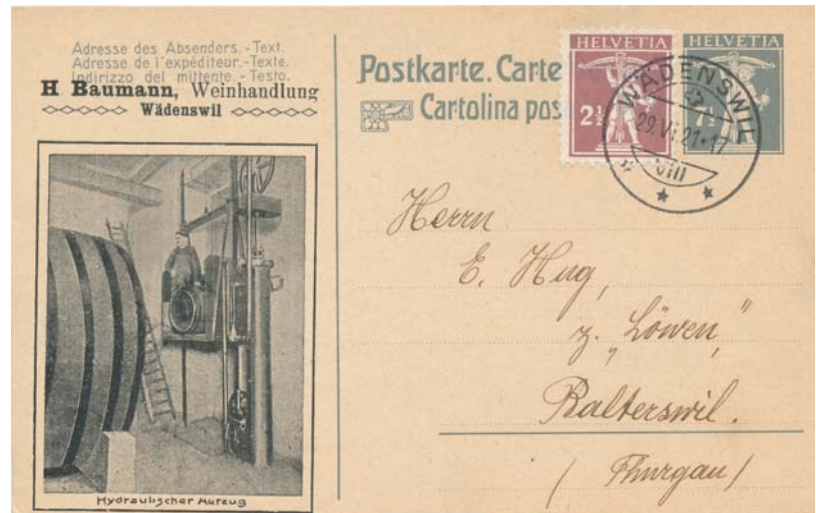 Adresse des Absenders.-Text.
Adresse de l'expéditeur.-Texte.
Indirizzo del mittente.-Testo.
H Baumann, Weinhandlung
Wädenswil
Hydraulischer Aufzug
Postkarte. Carte
Cartolina pos
HELVETIA
2½
HELVETIA
7½
WÄDENSWIL
29.VI.21-17
VIII
Herrn
E. Hug,
z. "Löwen"
Balterswil.
(Thurgau)